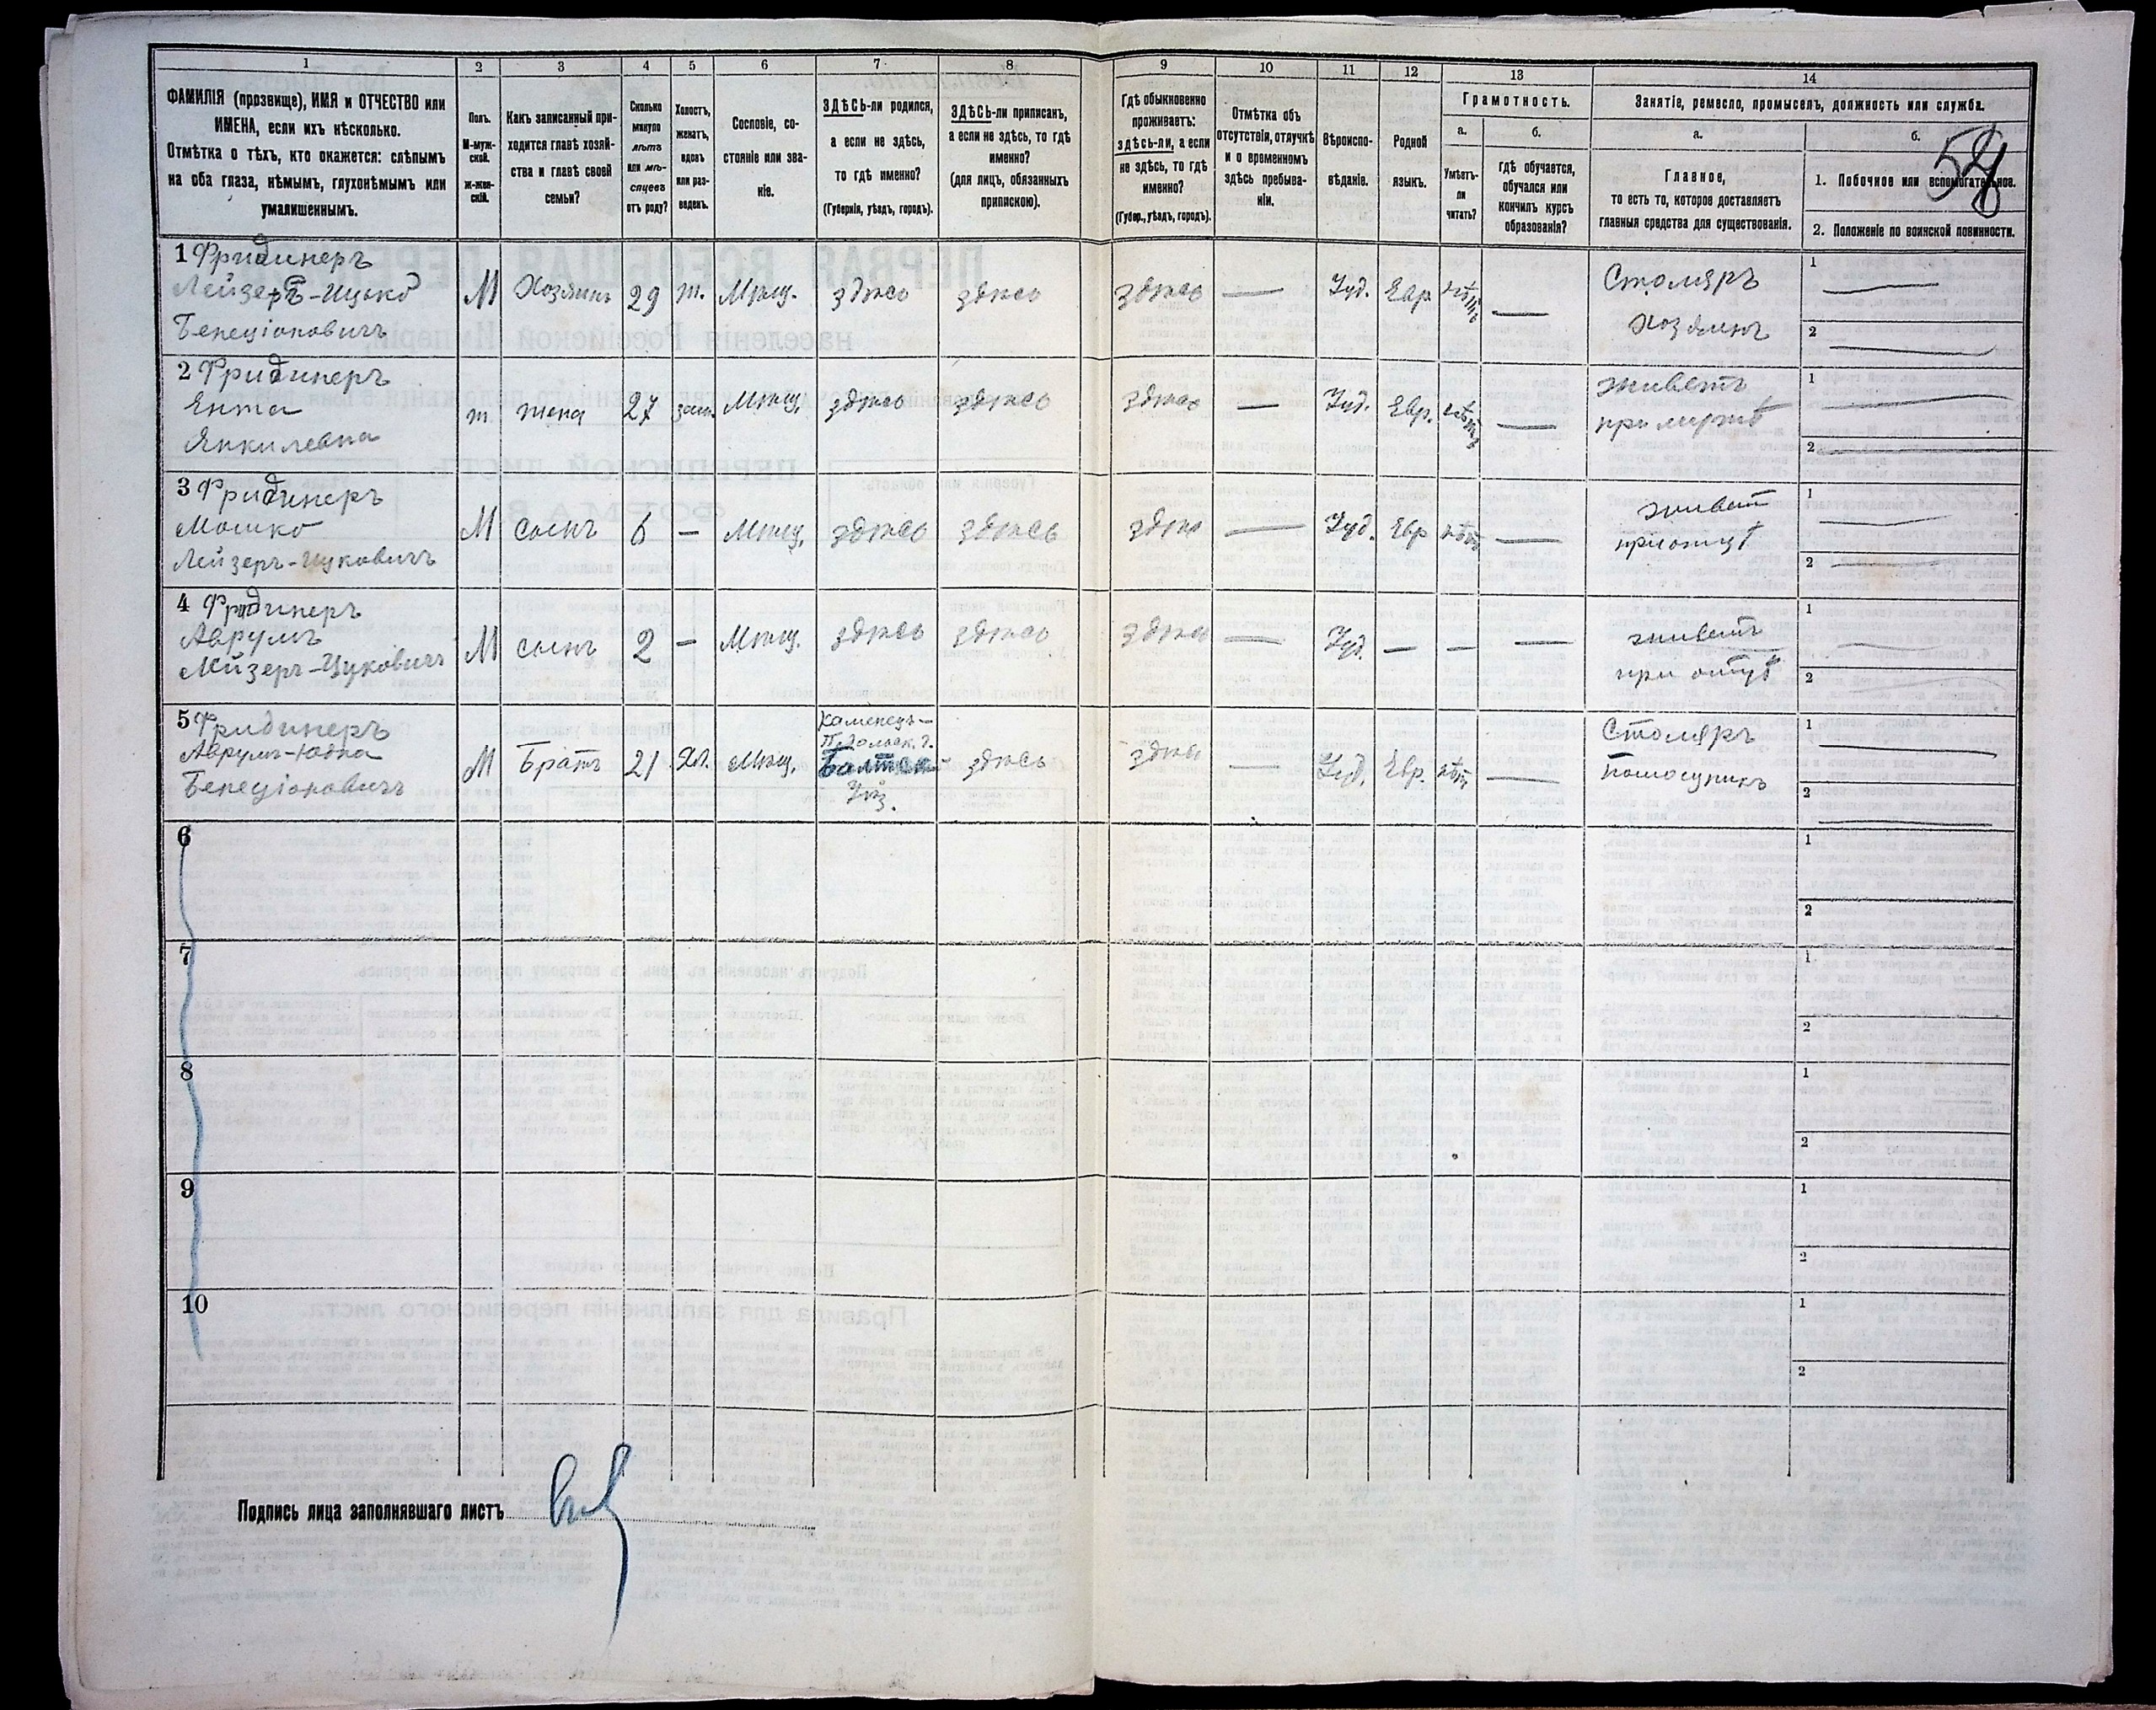 1
2
3
4
5
6
7
8
9
10
11
12
13
14
ФАМИЛІЯ (прозвище), ИМЯ и ОТЧЕСТВО или
ИМЕНА, если ихъ нѣсколько.
Отмѣтка о тѣхъ, кто окажется: слѣпымъ
на оба глаза, нѣмымъ, глухонѣмымъ или
умалишеннымъ.
Полъ.
М-муж-
ской.
Ж-жен-
скій.
Какъ записанный при-
ходится главѣ хозяй-
ства и главѣ своей
семьи?
Сколько
минуло
лѣтъ
или мѣ-
сяцевъ
отъ роду?
Холостъ,
женатъ,
вдовъ
или раз-
веденъ.
Сословіе, со-
стояніе или зва-
ніе.
ЗДѢСЬ-ли родился,
а если не здѣсь,
то гдѣ именно?
(Губернія, уѣздъ, городъ).
ЗДѢСЬ-ли приписанъ,
а если не здѣсь, то гдѣ
именно?
(для лицъ, обязанныхъ
припискою).
Гдѣ обыкновенно
проживаетъ:
здѣсь-ли, а если
не здѣсь, то гдѣ
именно?
(Губер., уѣздъ, городъ).
Отмѣтка объ
отсутствіи, отлучкѣ
и о временномъ
здѣсь пребыва-
ніи.
Вѣроиспо-
вѣданіе.
Родной
языкъ.
Грамотность.
а.
Умѣетъ-
ли
читать?
б.
Гдѣ обучается,
обучался или
кончилъ курсъ
образованія?
Занятіе, ремесло, промыселъ, должность или служба.
а.
Главное,
то есть то, которое доставляетъ
главныя средства для существованія.
б.
1. Побочное или вспомогательное.
2. Положеніе по воинской повинности.
1 Фридинеръ
Лейзеръ-Ицко
Бенеціоновичъ
М Хозяинъ 29 ж. Мѣщ. здѣсь здѣсь здѣсь — Іуд. Евр. нѣтъ —
Столяръ
Хозяинъ
1 —
2 —
2 Фридинеръ
Ента
Янкилевна
ж жена 27 зам. Мѣщ. здѣсь здѣсь здѣсь — Іуд. Евр. нѣтъ —
живетъ
при мужѣ
1 —
2 —
3 Фридинеръ
Мошко
Лейзеръ-Ицковичъ
М сынъ 6 — Мѣщ. здѣсь здѣсь здѣсь — Іуд. Евр нѣтъ —
живетъ
при отцѣ
1 —
2 —
4 Фридинеръ
Аврумъ
Лейзеръ-Ицковичъ
М сынъ 2 — Мѣщ. здѣсь здѣсь здѣсь — Іуд. — — —
живетъ
при отцѣ
1 —
2 —
5 Фридинеръ
Аврумъ-Юдка
Бенеціоновичъ
М Братъ 21 Хл. Мѣщ.
Каменецъ-
Подольск. г.
Балтск.
Уѣз.
здѣсь здѣсь — Іуд. Евр. нѣтъ —
Столяръ
помощникъ
1 —
2 —
6
1
2
7
1
2
8
1
2
9
1
2
10
1
2
Подпись лица заполнявшаго листъ